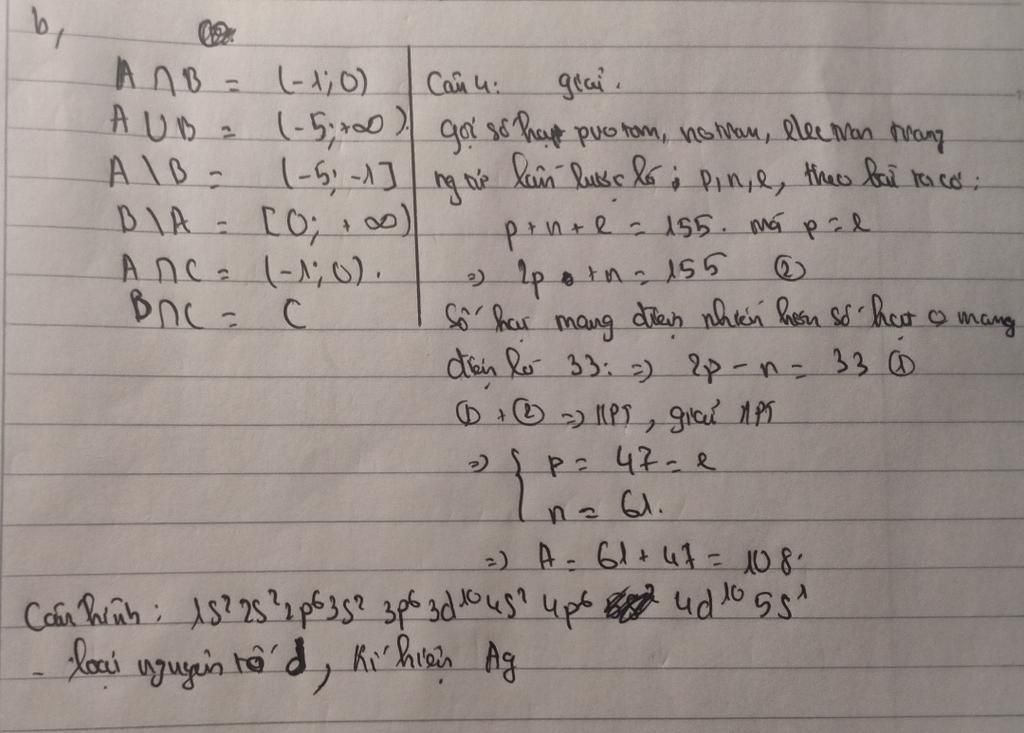 b,
A ∩ B = (-1; 0)
A ∪ B = (-5; +∞)
A \ B = (-5; -1]
B \ A = [0; +∞)
A ∩ C = (-1; 0).
B ∩ C = C
Câu 4: giải.
gọi số hạt proton, notron, electron trong
ng tử lần lượt là: p, n, e, theo bài ra có:
p + n + e = 155. mà p = e
=> 2p + n = 155 ②
Số hạt mang điện nhiều hơn số hạt o mang
điện là 33: => 2p - n = 33 ①
① + ② => HPT, giải HPT
=> { p = 47 = e
n = 61.
=> A = 61 + 47 = 108.
Cấu hình: 1s² 2s² 2p⁶ 3s² 3p⁶ 3d¹⁰ 4s² 4p⁶ 4d¹⁰ 5s¹
- loại nguyên tố d, Kí hiệu Ag